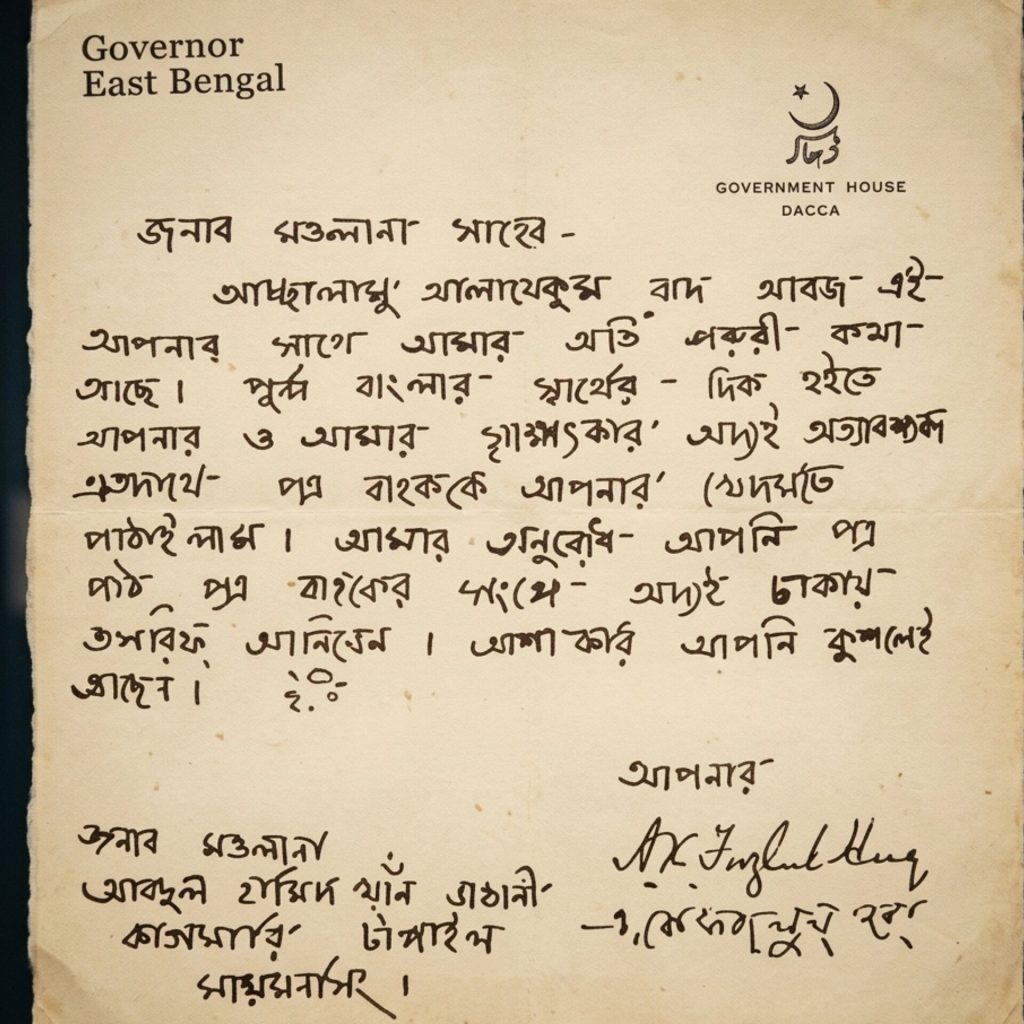 Governor
East Bengal
GOVERNMENT HOUSE
DACCA
জনাব মওলানা সাহেব -
আচ্ছালামু আলায়েকুম বাদ আরজ এই
আপনার সাথে আমার অতি জরুরী কথা
আছে। পূর্ব্ব বাংলার স্বার্থের - দিক হইতে
আপনার ও আমার সাক্ষাৎকার অদ্যই অত্যাবশ্যক
এতদার্থে পত্র বাহককে আপনার খেদমতে
পাঠাইলাম। আমার অনুরোধ আপনি পত্র
পাঠ পত্র বাহকের সংগে অদ্যই ঢাকায়
তসরিফ আনিবেন। আশা করি আপনি কুশলেই
আছেন।
আপনার
A. K. Fazlul Huq
জনাব মওলানা
আবদুল হামিদ খাঁন ভাষানী
কাগমারি টাঙ্গাইল
মায়মনসিং।